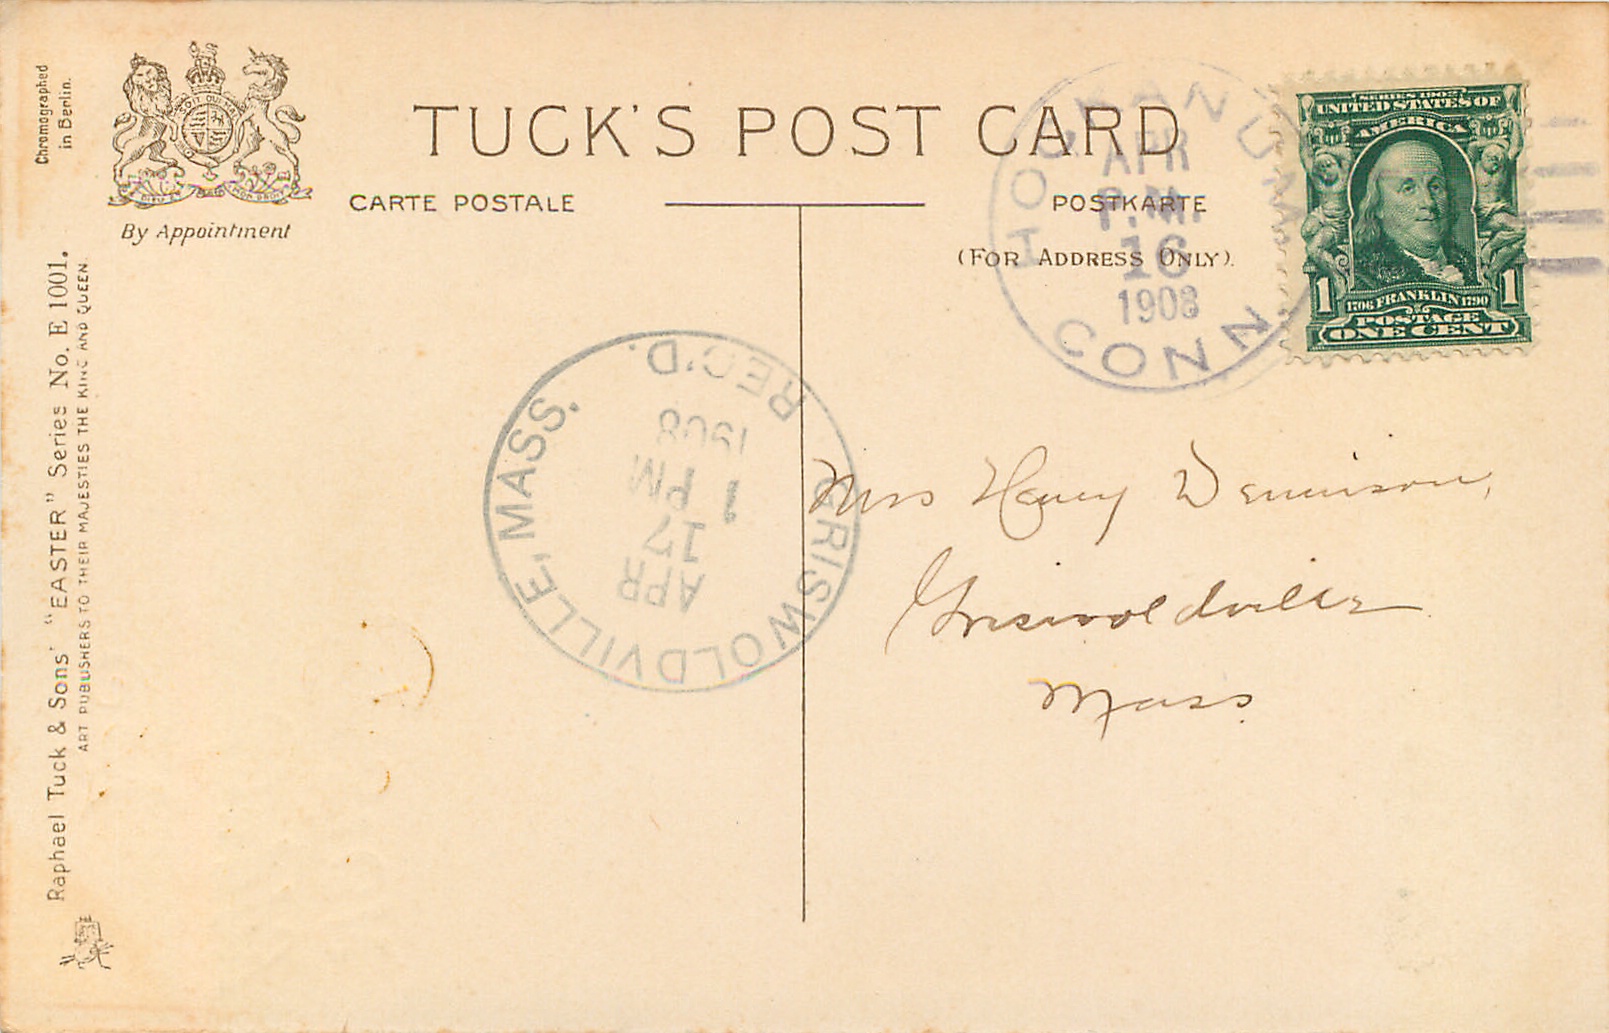 Chromographed
in Berlin.
By Appointment
TUCK'S POST CARD
CARTE POSTALE
POSTKARTE
(FOR ADDRESS ONLY).
HOCKANUM
APR
P.M.
16
1908
CONN
SERIES 1902
UNITED STATES OF
AMERICA
1 1
1706 FRANKLIN 1790
POSTAGE
ONE CENT
GRISWOLDVILLE, MASS.
APR
17
1 PM
1908
REC'D.
Mrs Henry Dennison,
Griswoldville
Mass.
Raphael Tuck & Sons' "EASTER" Series No. E 1001.
ART PUBLISHERS TO THEIR MAJESTIES THE KING AND QUEEN.